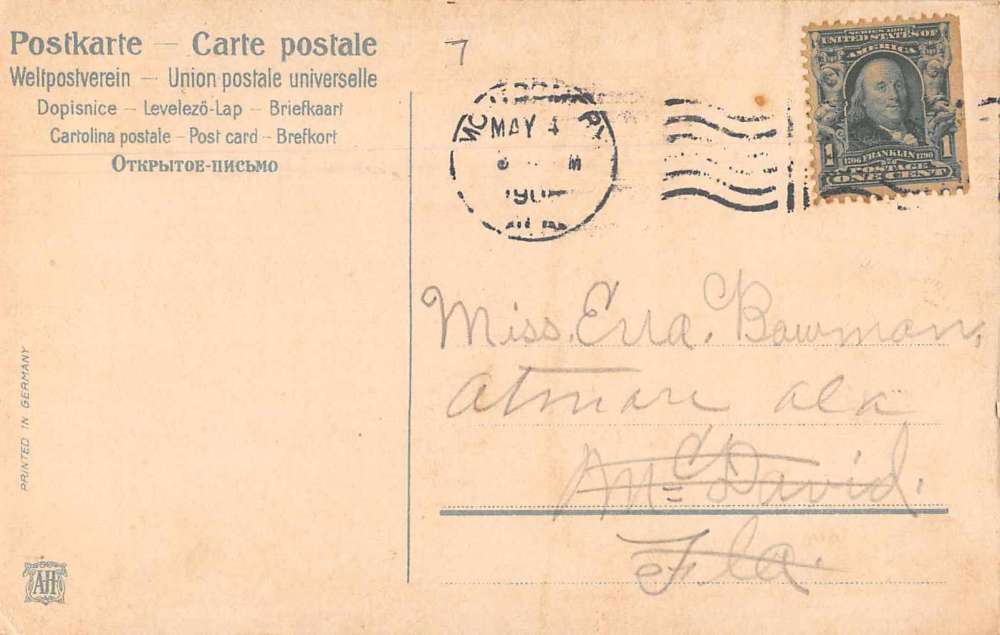 Postkarte — Carte postale
Weltpostverein — Union postale universelle
Dopisnice — Levelező-Lap — Briefkaart
Cartolina postale — Post card — Brefkort
Открытое-письмо
7
MAY 4
M
190
SERIES 1902
UNITED STATES OF
AMERICA
1 1
1706 FRANKLIN 1790
POSTAGE
ONE CENT
Miss. Erra. Bowman,
Atmore ala
McDavid.
Fla.
PRINTED IN GERMANY
AH